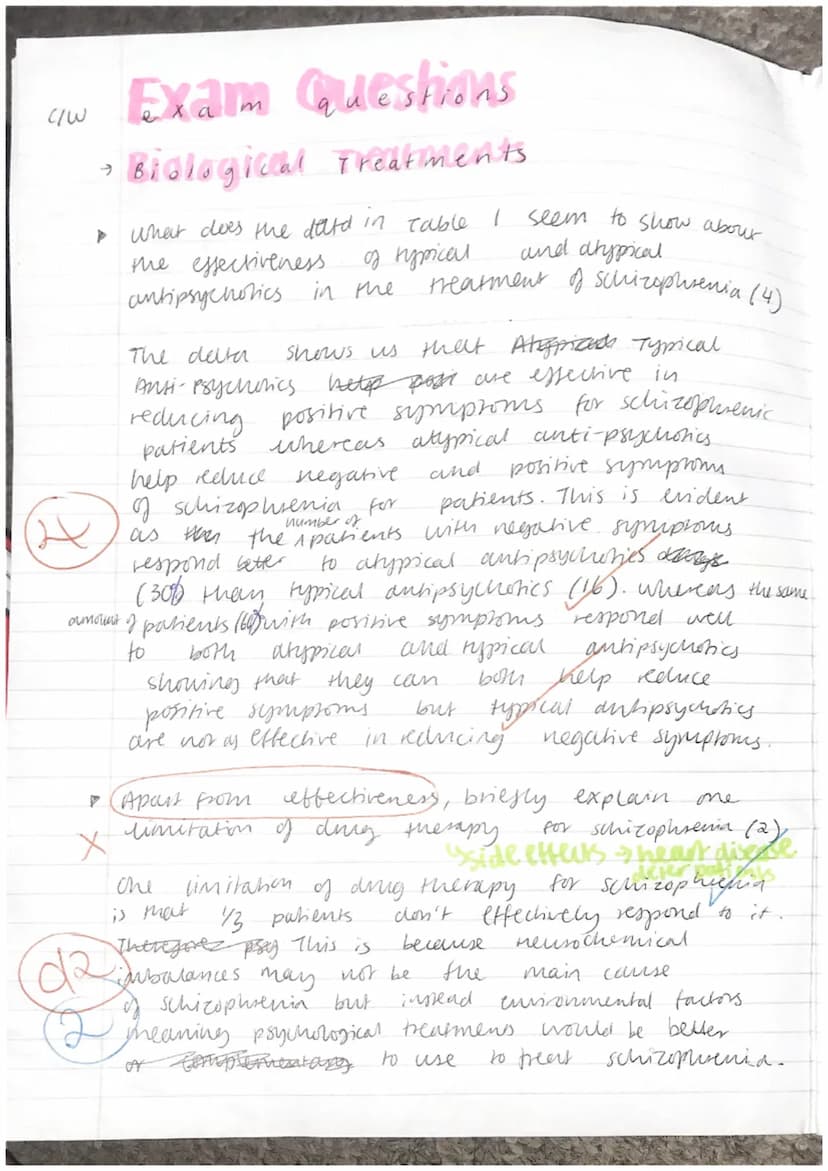 Exam Questions
C/W exam questions
→ Biological Treatments
Biological Treatments
What does the data in Table 1 seem to show about
the effectiveness of typical and atypical
antipsychotics in the treatment of schizophrenia (4)
The data shows us that Atypical Typical
Anti-Psychotics help posi are effective in
reducing positive symptoms for schizophrenic
patients whereas atypical anti-psychotics
help reduce negative and positive symptoms
of schizophrenia for patients. This is evident
4
as the number of patients with negative symptoms
respond better to atypical antipsychotics
(30%) than typical antipsychotics (16). Whereas the same
amount of patients (60) with positive symptoms respond well
to both atypical and typical antipsychotics
showing that they can both help reduce
positive symptoms but typical antipsychotics
are not as effective in reducing negative symptoms.
Apart from effectiveness, briefly explain one
X limitation of drug therapy for schizophrenia (2)
side effects → heart disease
deter patients
One limitation of drug therapy for schizophrenia
is that 1/3 patients don't effectively respond to it.
Therefore psy This is because neurochemical
imbalances may not be the main cause
of schizophrenia but instead environmental factors
2
meaning psychological treatments would be better
or to use to treat schizophrenia.